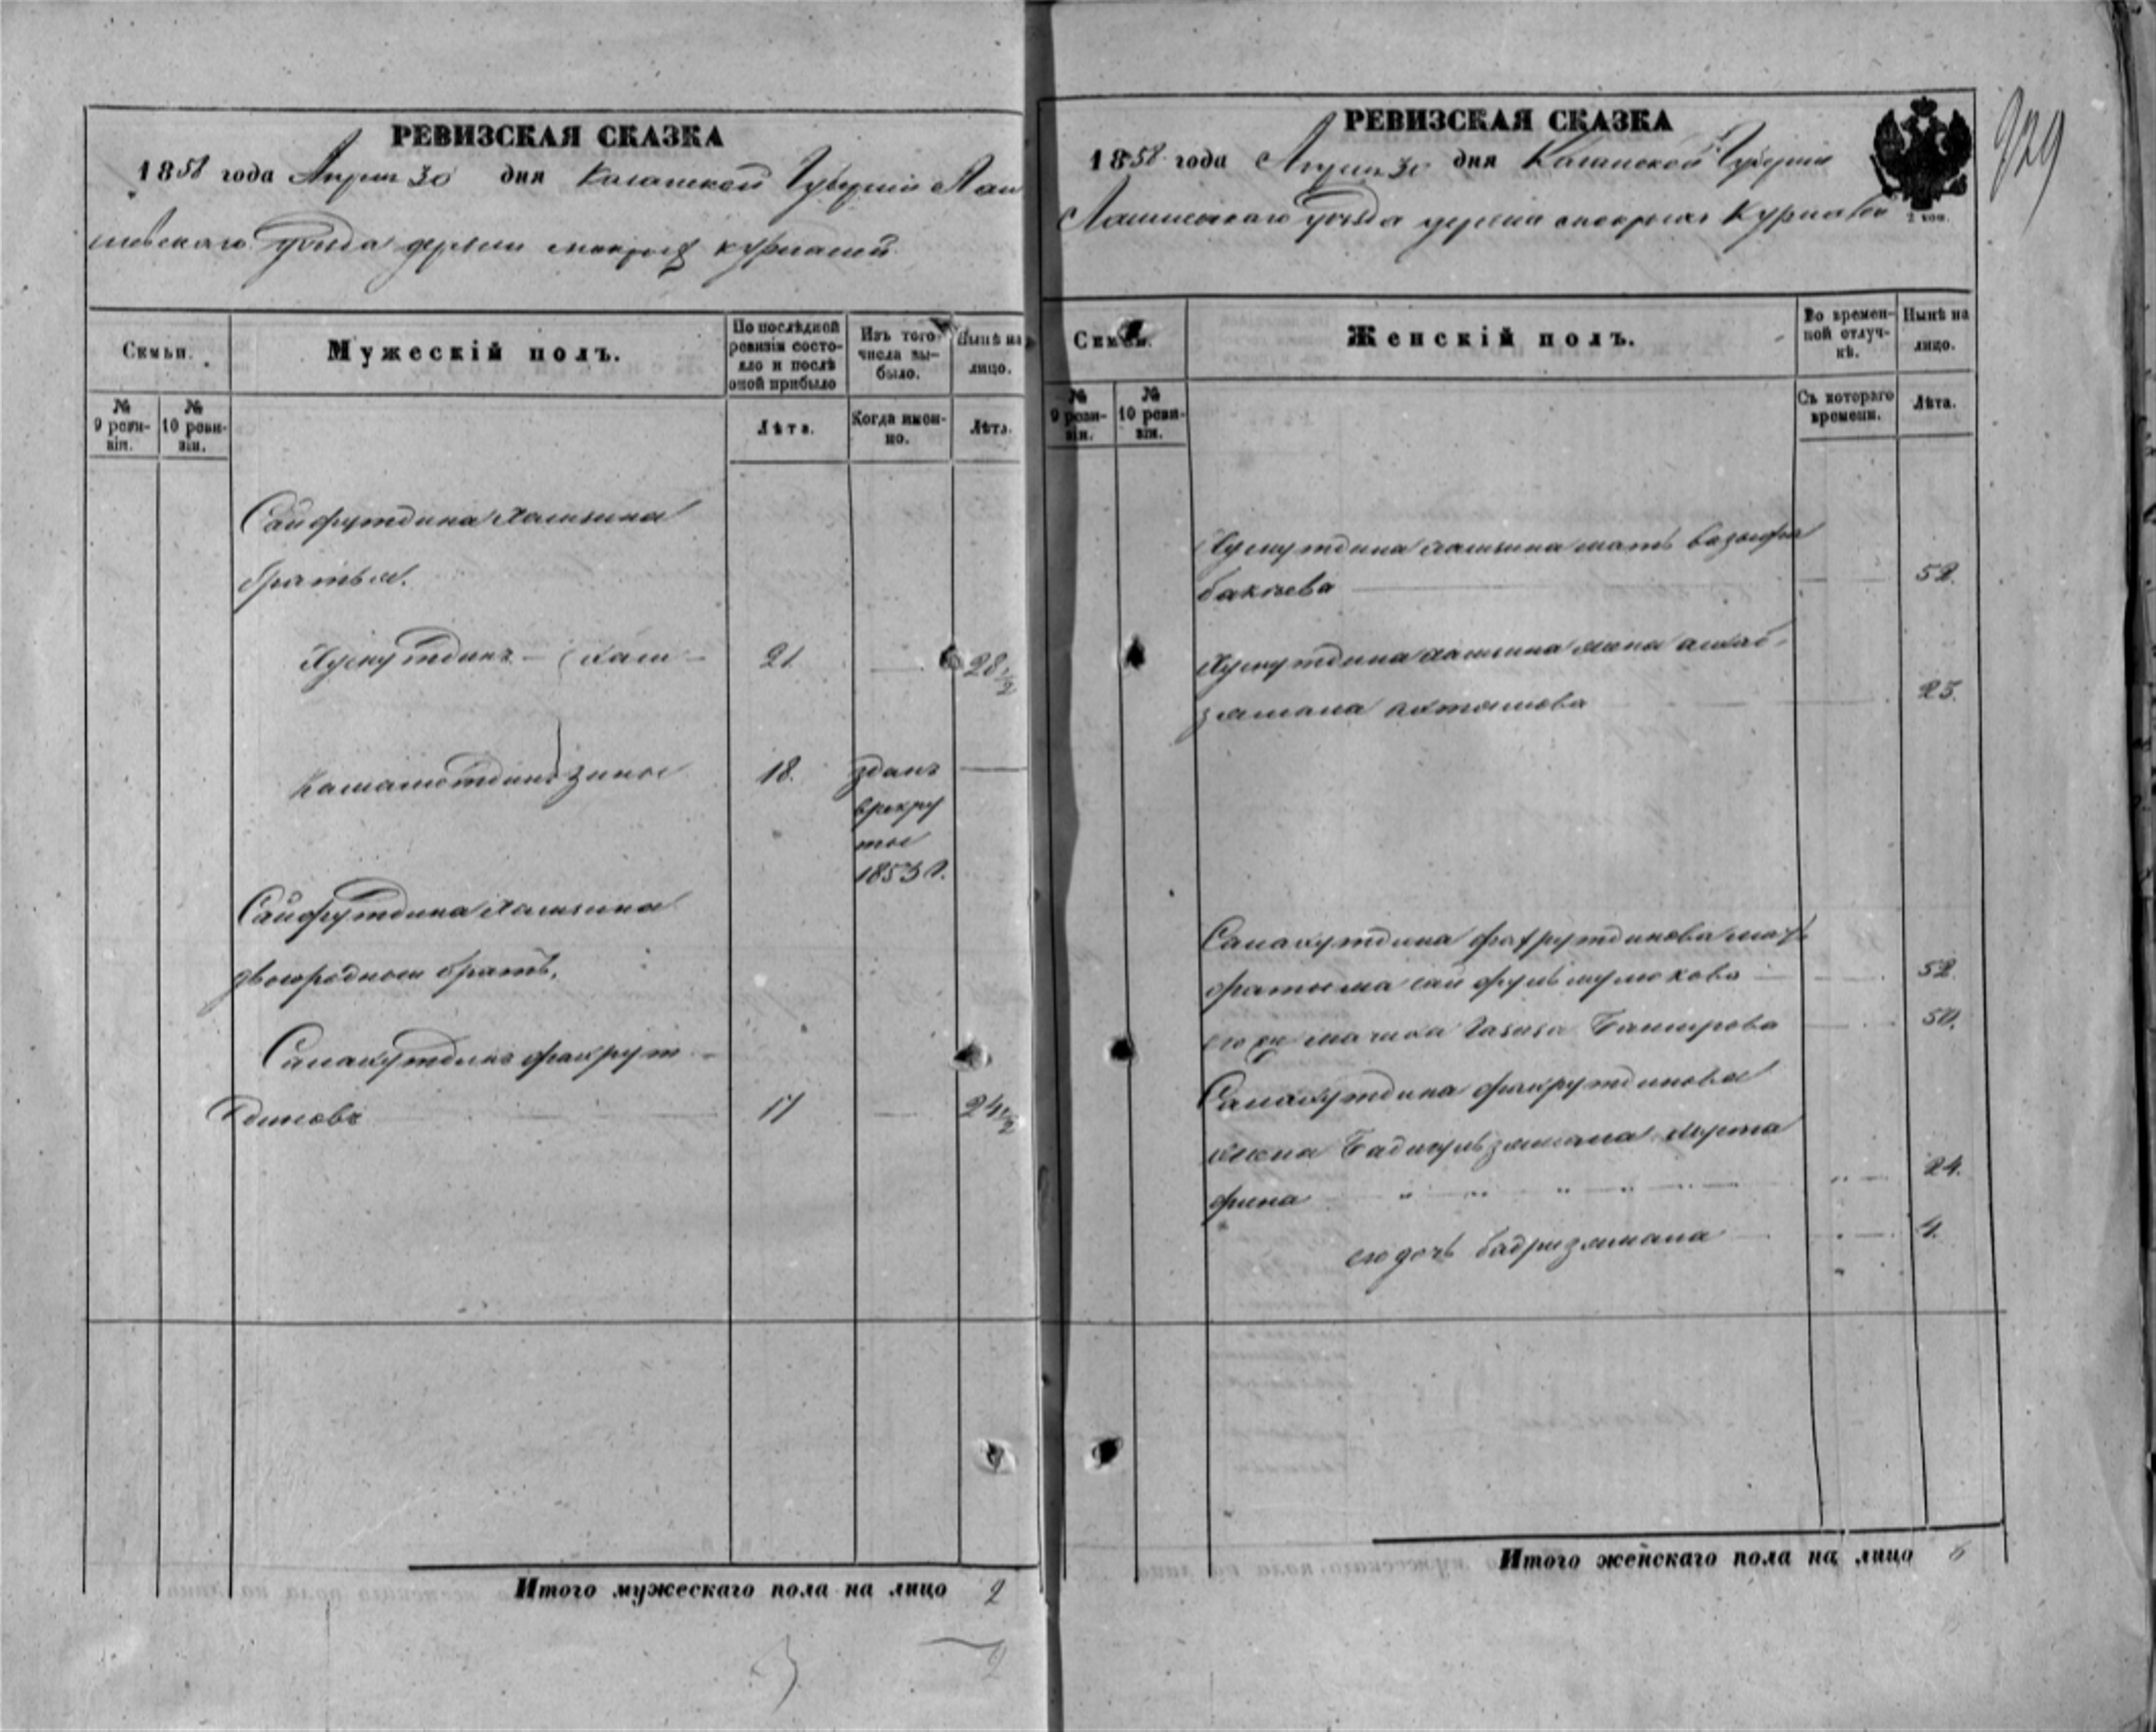 РЕВИЗСКАЯ СКАЗКА
1858 года Апреля 30 дня Казанской Губернии Лаи
шевскаго Уезда деревни мокрыхъ курналей
Семьи.
Мужескій полъ.
По послѣдней ревизіи состояло и послѣ оной прибыло
Изъ того числа выбыло.
Нынѣ на лицо.
№ 9 ревизіи.
№ 10 ревизіи.
Лѣта.
Когда именно.
Лѣта.
Сайфутдина Хамзина
братья.
Хузмутдинъ – Хам – 21 28 1/2
Камалютдинъ зины 18. зданъ
врекру
ты
1853 г.
Сайфутдина Хамзина
двоюродной братъ,
Салахутдинъ фахрут –
диновъ 17 24 1/2
Итого мужескаго пола на лицо 2
2
РЕВИЗСКАЯ СКАЗКА
1858 года Апреля 30 дня Казанской Губернии
Лаишевскаго Уезда деревни мокрыхъ Курналей
2 коп.
929
Семьи.
Женскій полъ.
Во временной отлучкѣ.
Нынѣ на лицо.
№ 9 ревизіи.
№ 10 ревизіи.
Съ котораго времени.
Лѣта.
Хузмутдина хамзина мать
бакиева 52.
Хузмутдина хамзина жена
замана 25.
Салахутдина фахрутдинова мать
фатыма сайфульмулюкова 52.
его же мачиха Газиза Баширова 50.
Салахутдина фахрутдинова
жена Бадигульзямана мурта
фина 24.
его дочь бадризямана 4.
Итого женскаго пола на лицо 6